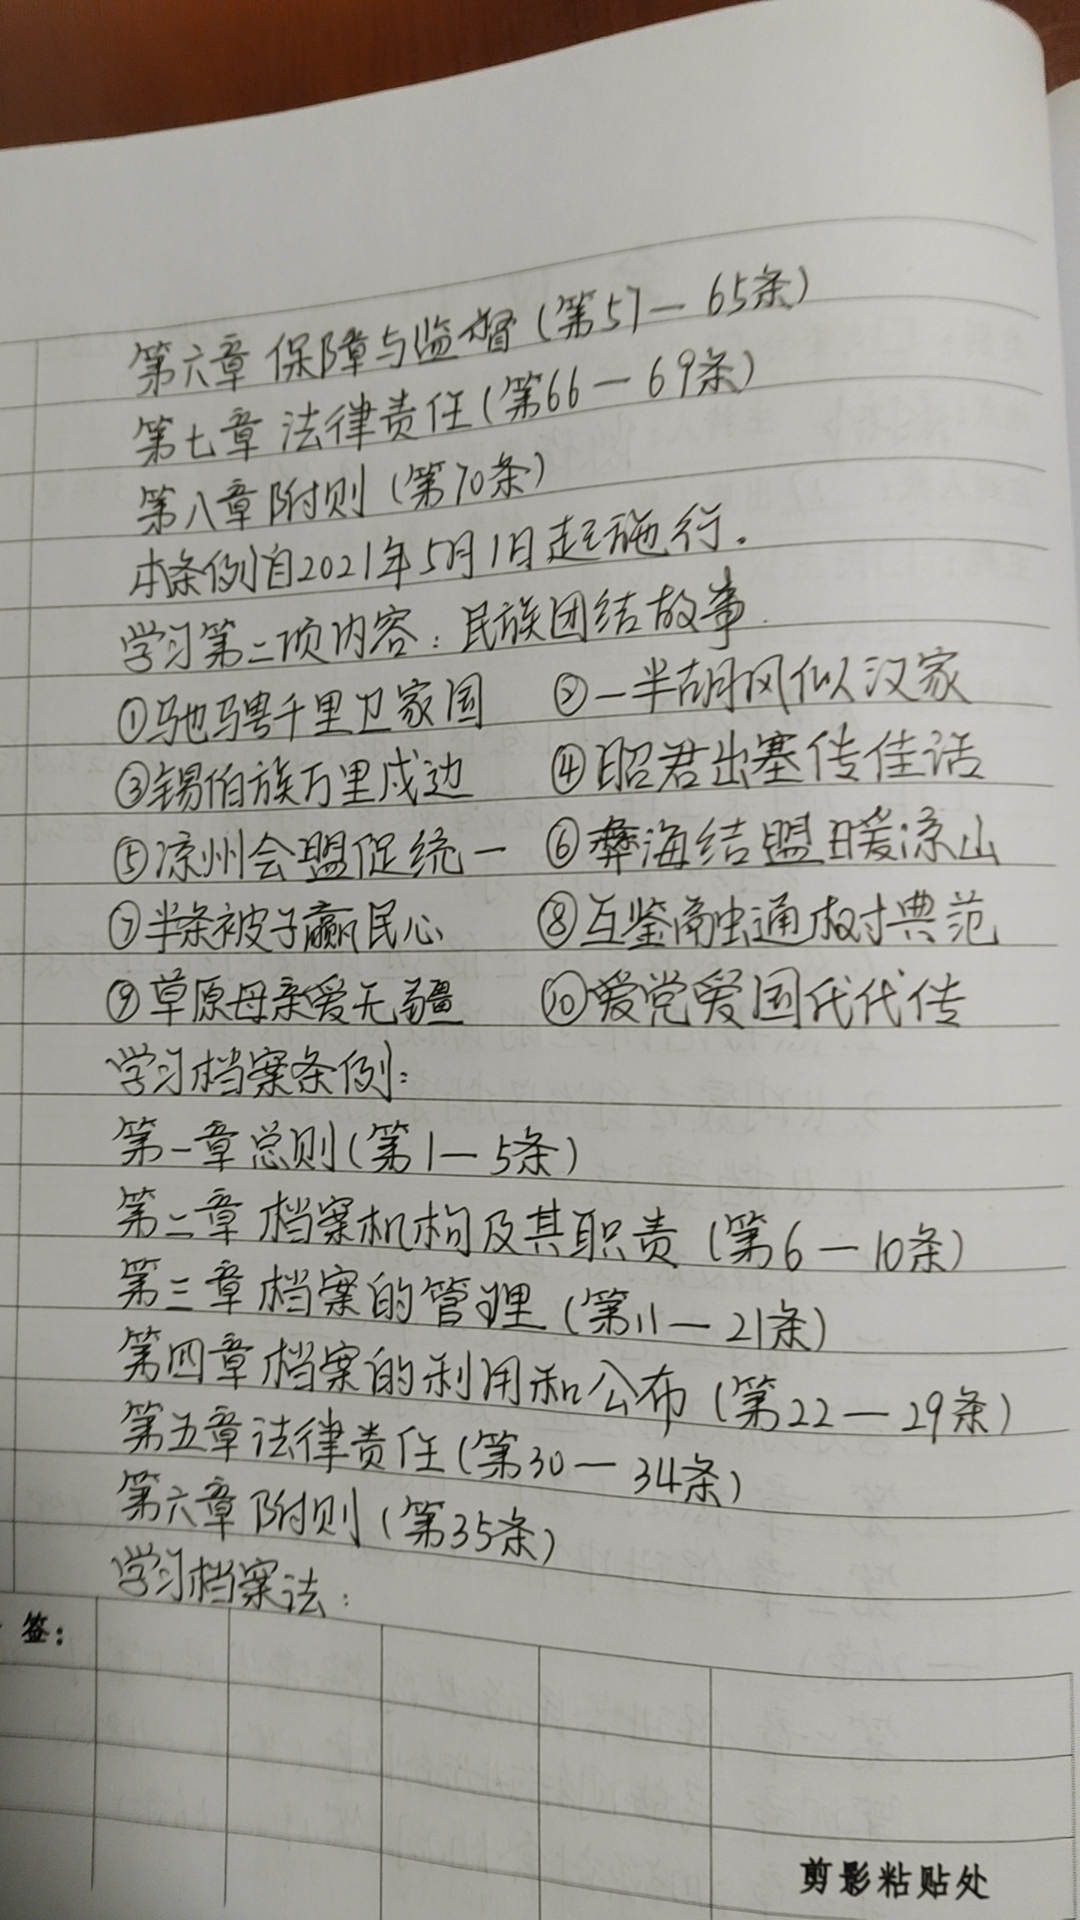 第六章 保障与监督(第57—65条)
第七章 法律责任(第66—69条)
第八章 附则(第70条)
本条例自2021年5月1日起施行.
学习第二项内容:民族团结故事.
①驰骋千里卫家国 ②一半胡风似汉家
③锡伯族万里戍边 ④昭君出塞传佳话
⑤凉州会盟促统一 ⑥彝海结盟暖凉山
⑦半条被子赢民心 ⑧互鉴融通树典范
⑨草原母亲爱无疆 ⑩爱党爱国代代传
学习档案条例:
第一章总则(第1—5条)
第二章 档案机构及其职责(第6—10条)
第三章 档案的管理(第11—21条)
第四章 档案的利用和公布(第22—29条)
第五章 法律责任(第30—34条)
第六章 附则(第35条)
学习档案法:
签:
剪影粘贴处